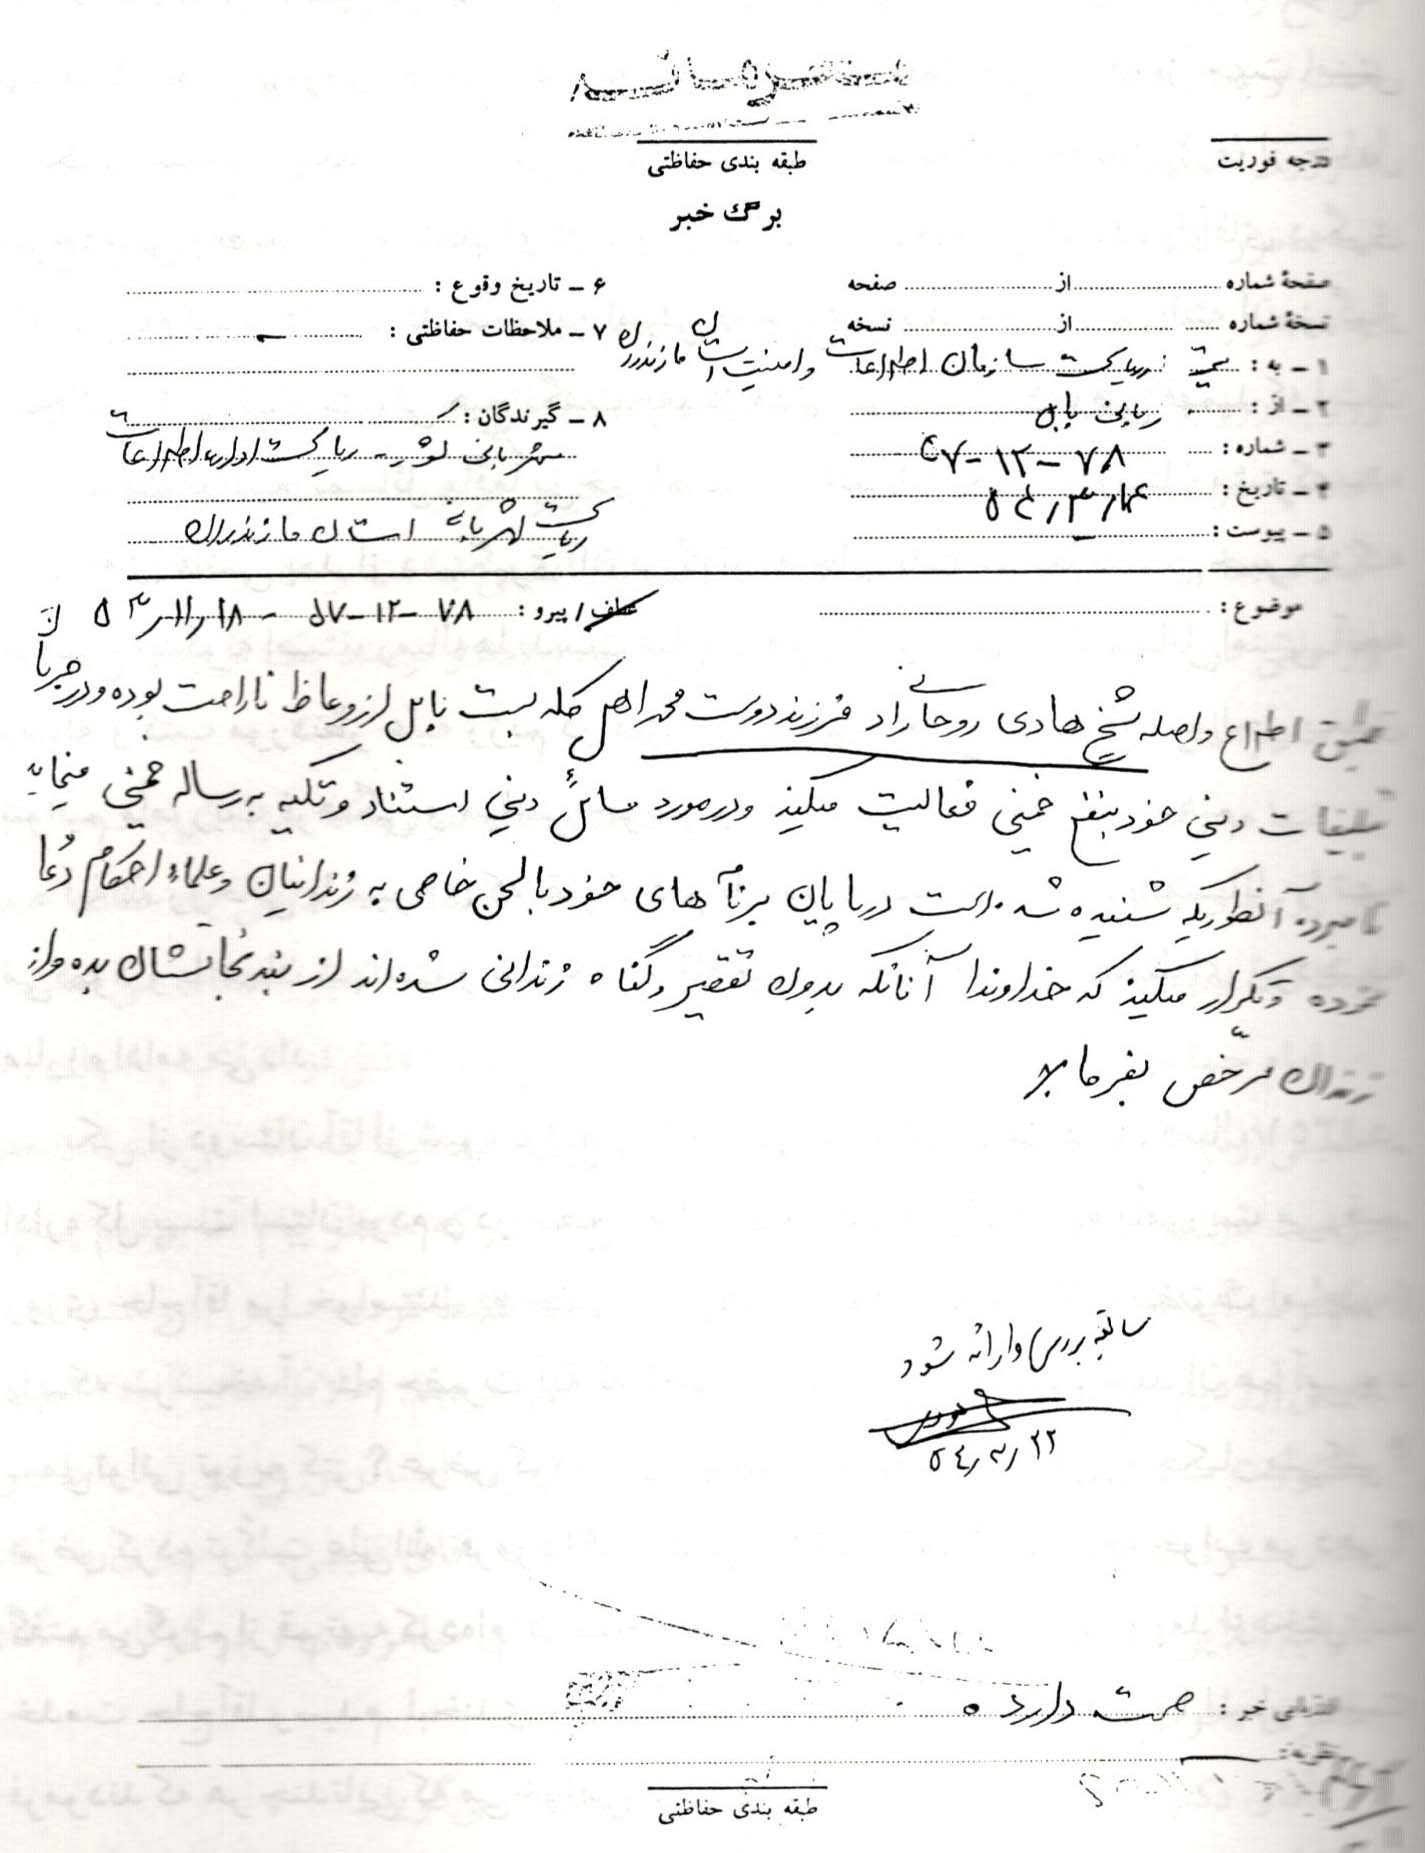 محرمانه
طبقه بندی حفاظتی
درجه فوریت
برگ خبر
صفحهٔ شماره از صفحه
نسخهٔ شماره از نسخه
۱ – به : ریاست سازمان اطلاعات و امنیت استان مازندران
۲ – از :
۳ – شماره : ۷۸-۱۲-۵۷
۴ – تاریخ :
۵ – پیوست : –
۶ – تاریخ وقوع :
۷ – ملاحظات حفاظتی : –
۸ – گیرندگان :
شهربانی کشور – ریاست اداره اطلاعات
ریاست شهربانی استان مازندران
موضوع :
عطف/پیرو : ۷۸-۱۲-۵۷ – ۱۸ر۱۱ر۵۳
طبق اطلاع واصله شیخ هادی روحانی راد فرزند دوست محمد اهل بابل از وعاظ ناراحت بوده و در جریان
تبلیغات دینی خود بنفع خمینی فعالیت میکند و در مورد مسائل دینی استناد و تکیه به رساله خمینی مینماید
نامبرده آنطوریکه شنیده شده است در پایان برنامه های خود با لحن خاصی به زندانیان و علماء احکام دعا
کرده و تکرار میکند که خداوندا آنانکه بدون تقصیر و گناه زندانی شده اند از بند نجاتشان بده و از
زندان مرخص بفرما
سابقه بررسی و ارائه شود
۲۲ر۳ر۵۴
ارزیابی خبر : صحت دارد
نظریه:
طبقه بندی حفاظتی